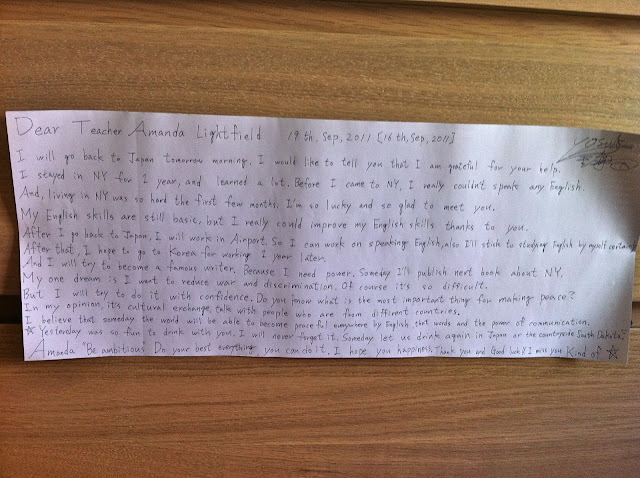 Dear Teacher Amanda Lightfield 19th. Sep, 2011 [16th, Sep, 2011]
I will go back to Japan tomorrow morning. I would like to tell you that I am grateful for your help.
I stayed in NY for 2 year, and learned a lot. Before I came to NY, I really couldn't speak any English.
And, living in NY was so hard the first few months. I'm so lucky and so glad to meet you.
My English skills are still basic, but I really could improve my English skills thanks to you.
After I go back to Japan, I will work in Airport. So I can work on speaking English, also I'll stick to studying English by myself certainly
After that, I hope to go to Korea for working 1 year later.
And I will try to become a famous writer. Because I need power. Someday I'll publish next book about NY.
My one dream is I want to reduce war and discrimination. Of course it's so difficult.
But I will try to do it with confidence. Do you know what is the most important thing for making peace?
In my opinion, it's cultural exchange, talk with people who are from different countries.
I believe that someday the world will be able to become peaceful everywhere by English that words and the power of communication.
☆ Yesterday was so fun to drink with you. I will never forget it. Someday let us drink again in Japan or the countryside South Dakota.
Amanda "Be ambitious" Do your best everything you can do it. I hope you happiness, Thank you and Good luck!! I miss you Kind of ☆